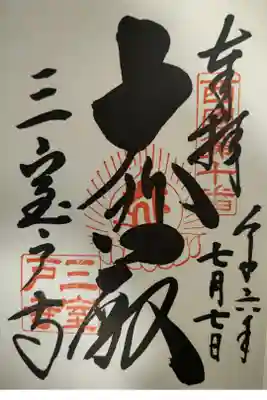 奉拝
西国第十番
令和六年
七月七日
大悲殿
三室戸寺
三室
戸寺